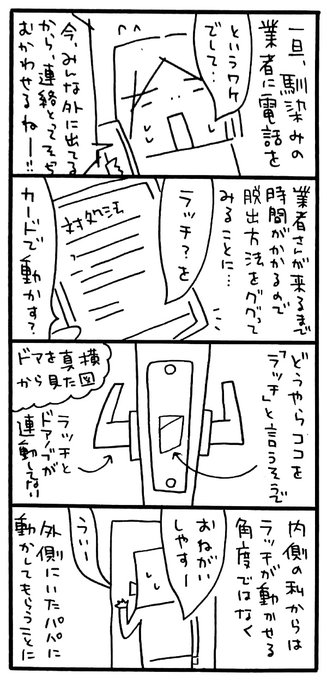 一旦、馴染みの
業者に電話を
というワケ
でして…
今、みんな外に出てる
から、連絡とってそち
むかわせるねー!!
業者さんが来るまで
時間がかかるので
脱出方法をググって
みることに…
ラッチ?を
対処法
カードで動かす?
どうやらココを
「ラッチ」と言うそうで
ドアを真横
から見た図
ラッチと
ドアノブが
連動してない
内側の私からは
ラッチが動かせる
角度ではなく
おねがい
しやすー
うぃー
外側にいたパパに
動かしてもらうことに